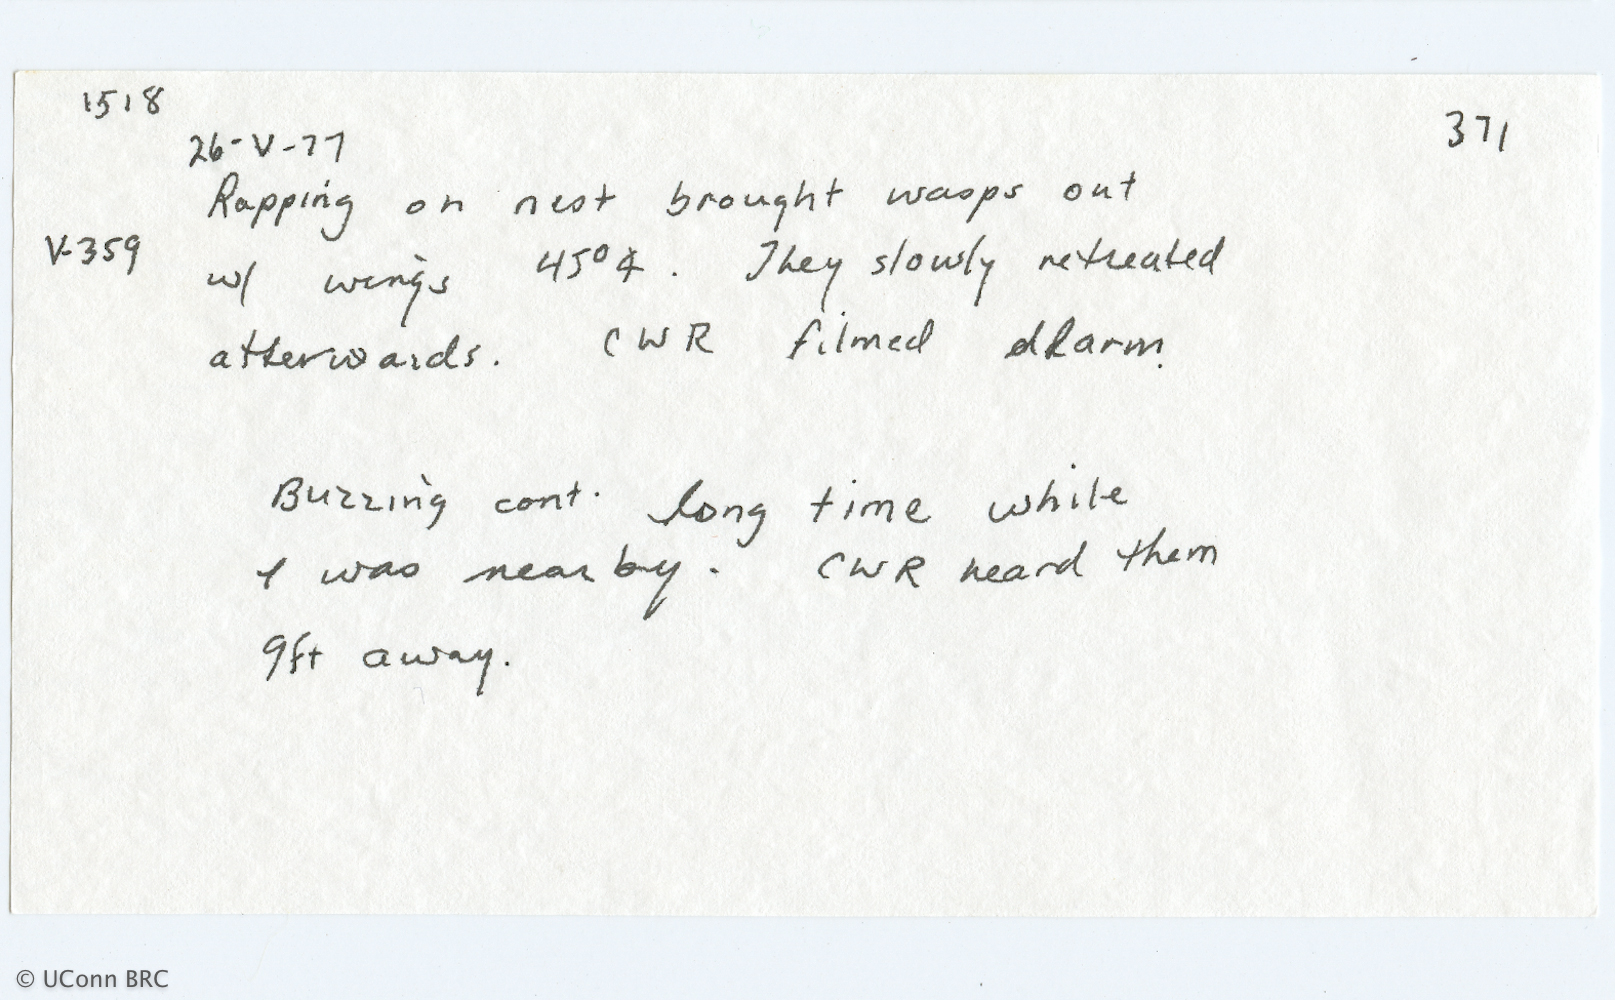 1518
371
26-V-77
Rapping on nest brought wasps out
V-359
w/ wings 45°∢. They slowly retreated
afterwards. CWR filmed alarm.
Buzzing cont. long time while
I was nearby. CWR heard them
9ft away.
© UConn BRC